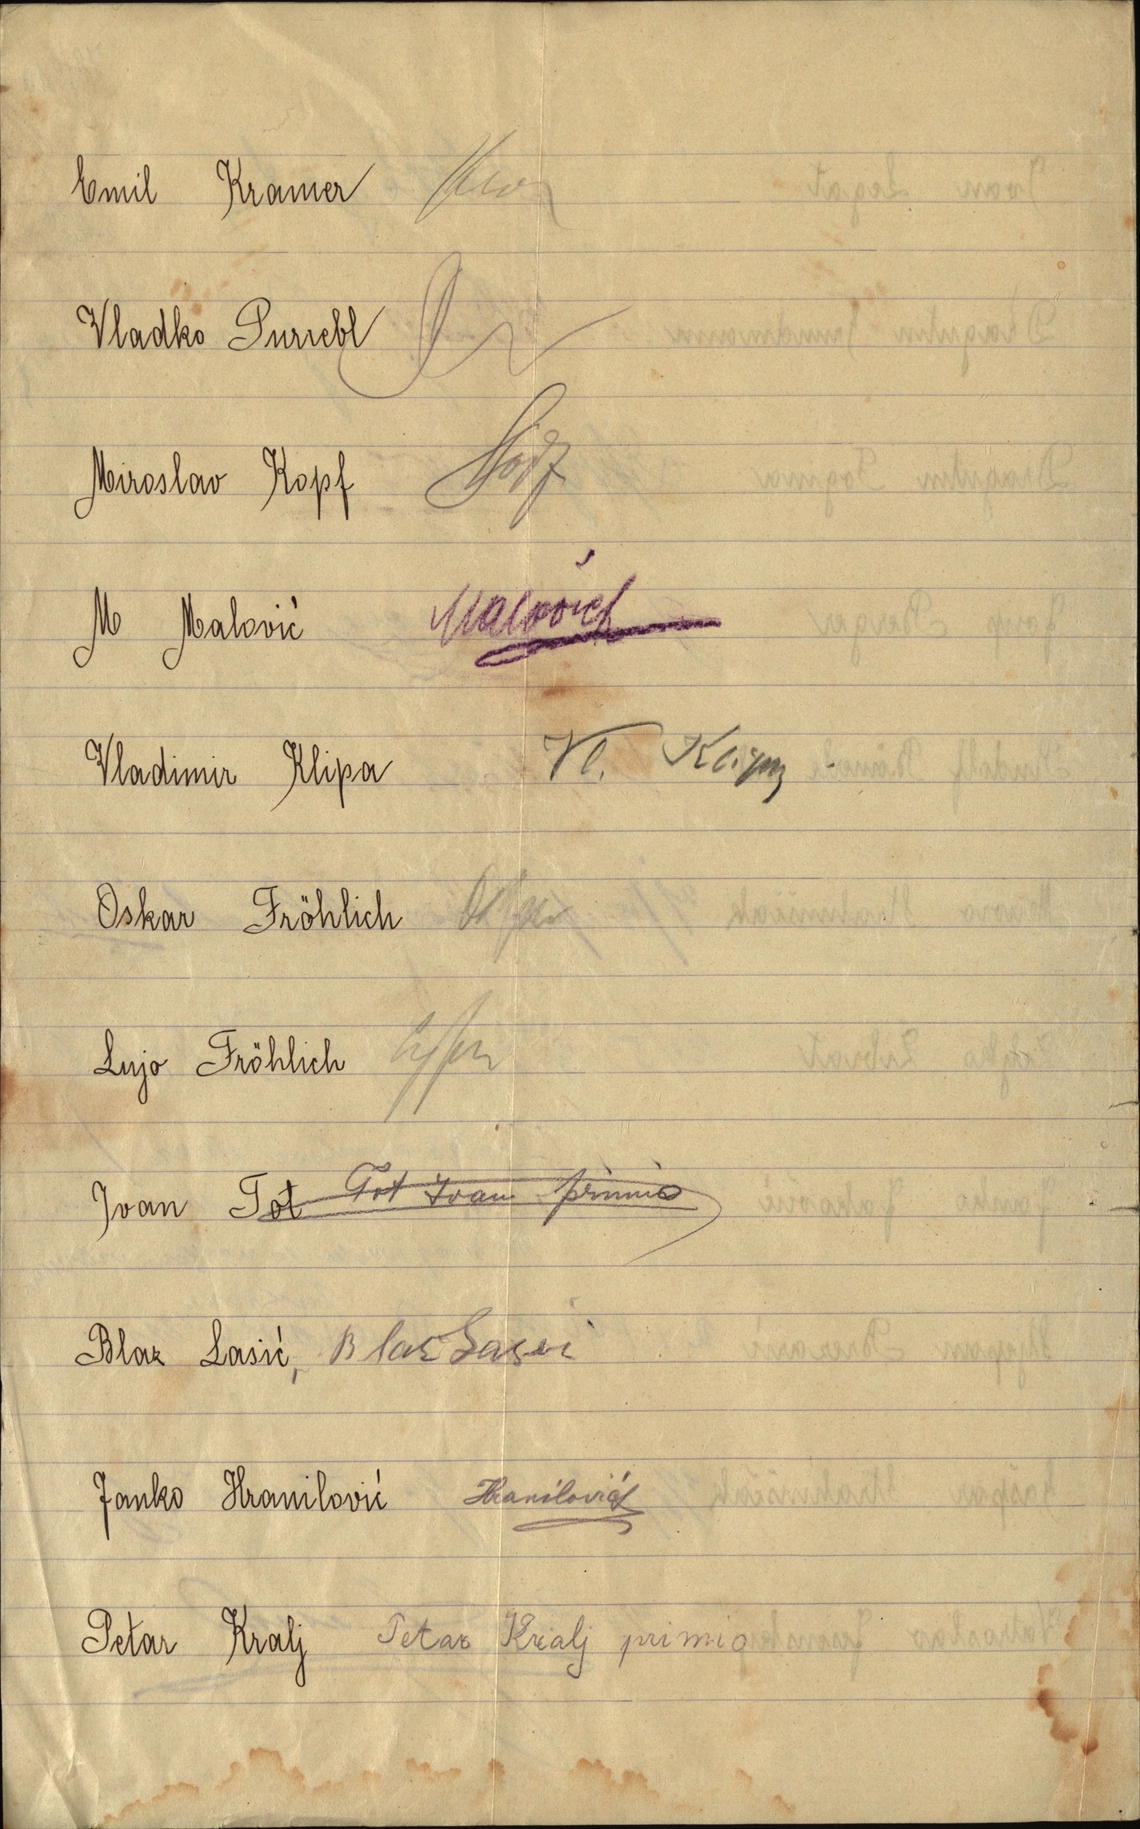 Emil Kramer
Vladko Purrebl
Miroslav Kopf
M Malović Malović
Vladimir Klipa Vl. Klipa
Oskar Fröhlich
Lujo Fröhlich
Ivan Tot Tot Ivan primio
Blaz Lasić, Blaz Lasić
Janko Hranilović Hranilović
Petar Kralj Petar Kralj primio